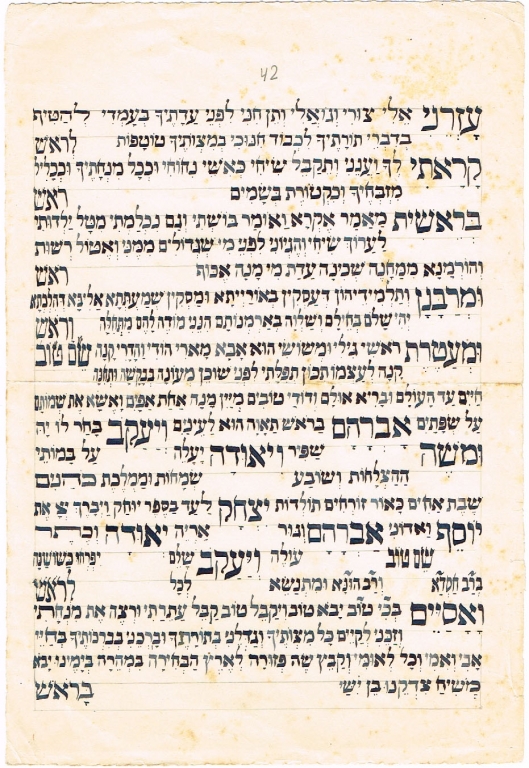 42
עזרני אלי צורי וגואלי ותן חני לפני עדתיך בעמדי להטיף
בדברי תורתיך לכבוד חנוכי במצותיך טוטפות לראש
קראתי לך ויענני ותקבל שיחי כאשי נחוחי וככל מנחתיך וככליל
מזבחיך וכקטורת בשמים ראש
בראשית מאמר אקרא ואומר בושתי וגם נכלמתי מטל ילדותי
לערוך שיחי והגיוני לפני מי שגדולים ממני ואטול רשות
והורמנא ממחנה שכינה עדת מי מנה אכוף ראש
ומרבנן ותלמידיהון דעסקין באורייתא ומסקין שמעתתא אליבא דהלכתא
יהי שלם בחילם ושלוה בארמנותם הנני מודה להם מתחלה וראש
ומעטרת ראשי גילי ומשושי הוא אבא מארי הודי והדרי קנה שם טוב
קנה לעצמו תכון תפלתי לפני שוכן מעונה בבקשה ותחנה
חיים עד העולם ובריא אולם ודודי טובים מיין מנה אחת אפים ואשא את שמותם
על שפתים אברהם בראש תאוה הוא לעינים ויעקב בחר לו יה
ומשה שפיר ויאודה יעלה על במותי
ההצלחות וישובע שמחות וממלכת כהנים
שבת אחים כאור זורחים תולדות יצחק לעד בספר יוחק ויברך את
יוסף ואדוני אברהם וגור אריה יאודה וכתר
שם טוב עולה ויעקב שלם יפרחו כשושנה
ברב חסדא ורב הונא ומתנשא לכל לראש
ואסיים בכי טוב יבא טוב ויקבל טוב קבל עתרתי ורצה את מנחתי
וזכני לקיים כל מצותיך וגדלני בתורתך וברכני בברכותיך בחיי
אבי ואמי וכל לאומי וקבץ שה פזורה לארץ הבחירה במהרה בימינו יבא
משיח צדקנו בן ישי בראש